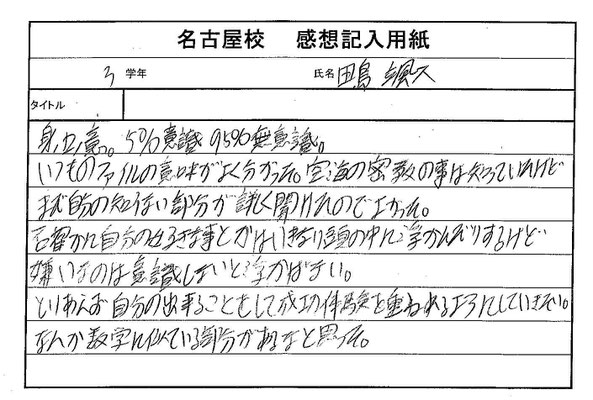 名古屋校 感想記入用紙
3 学年 氏名 田島 颯久
タイトル
身、口、意。5%意識 95%無意識。
いつものファイルの意味がよく分かった。空海の密教の事は知っていたけど
まだ自分の知らない部分が詳しく聞けたのでよかった。
確かに自分の好きな事とかはいきなり頭の中に浮かんだりするけど
嫌いなのは意識しないと浮かばない。
とりあえず自分の出来ることをして成功体験を重ねれるようにしていきたい。
なんか数学に似ている部分があるなと思った。